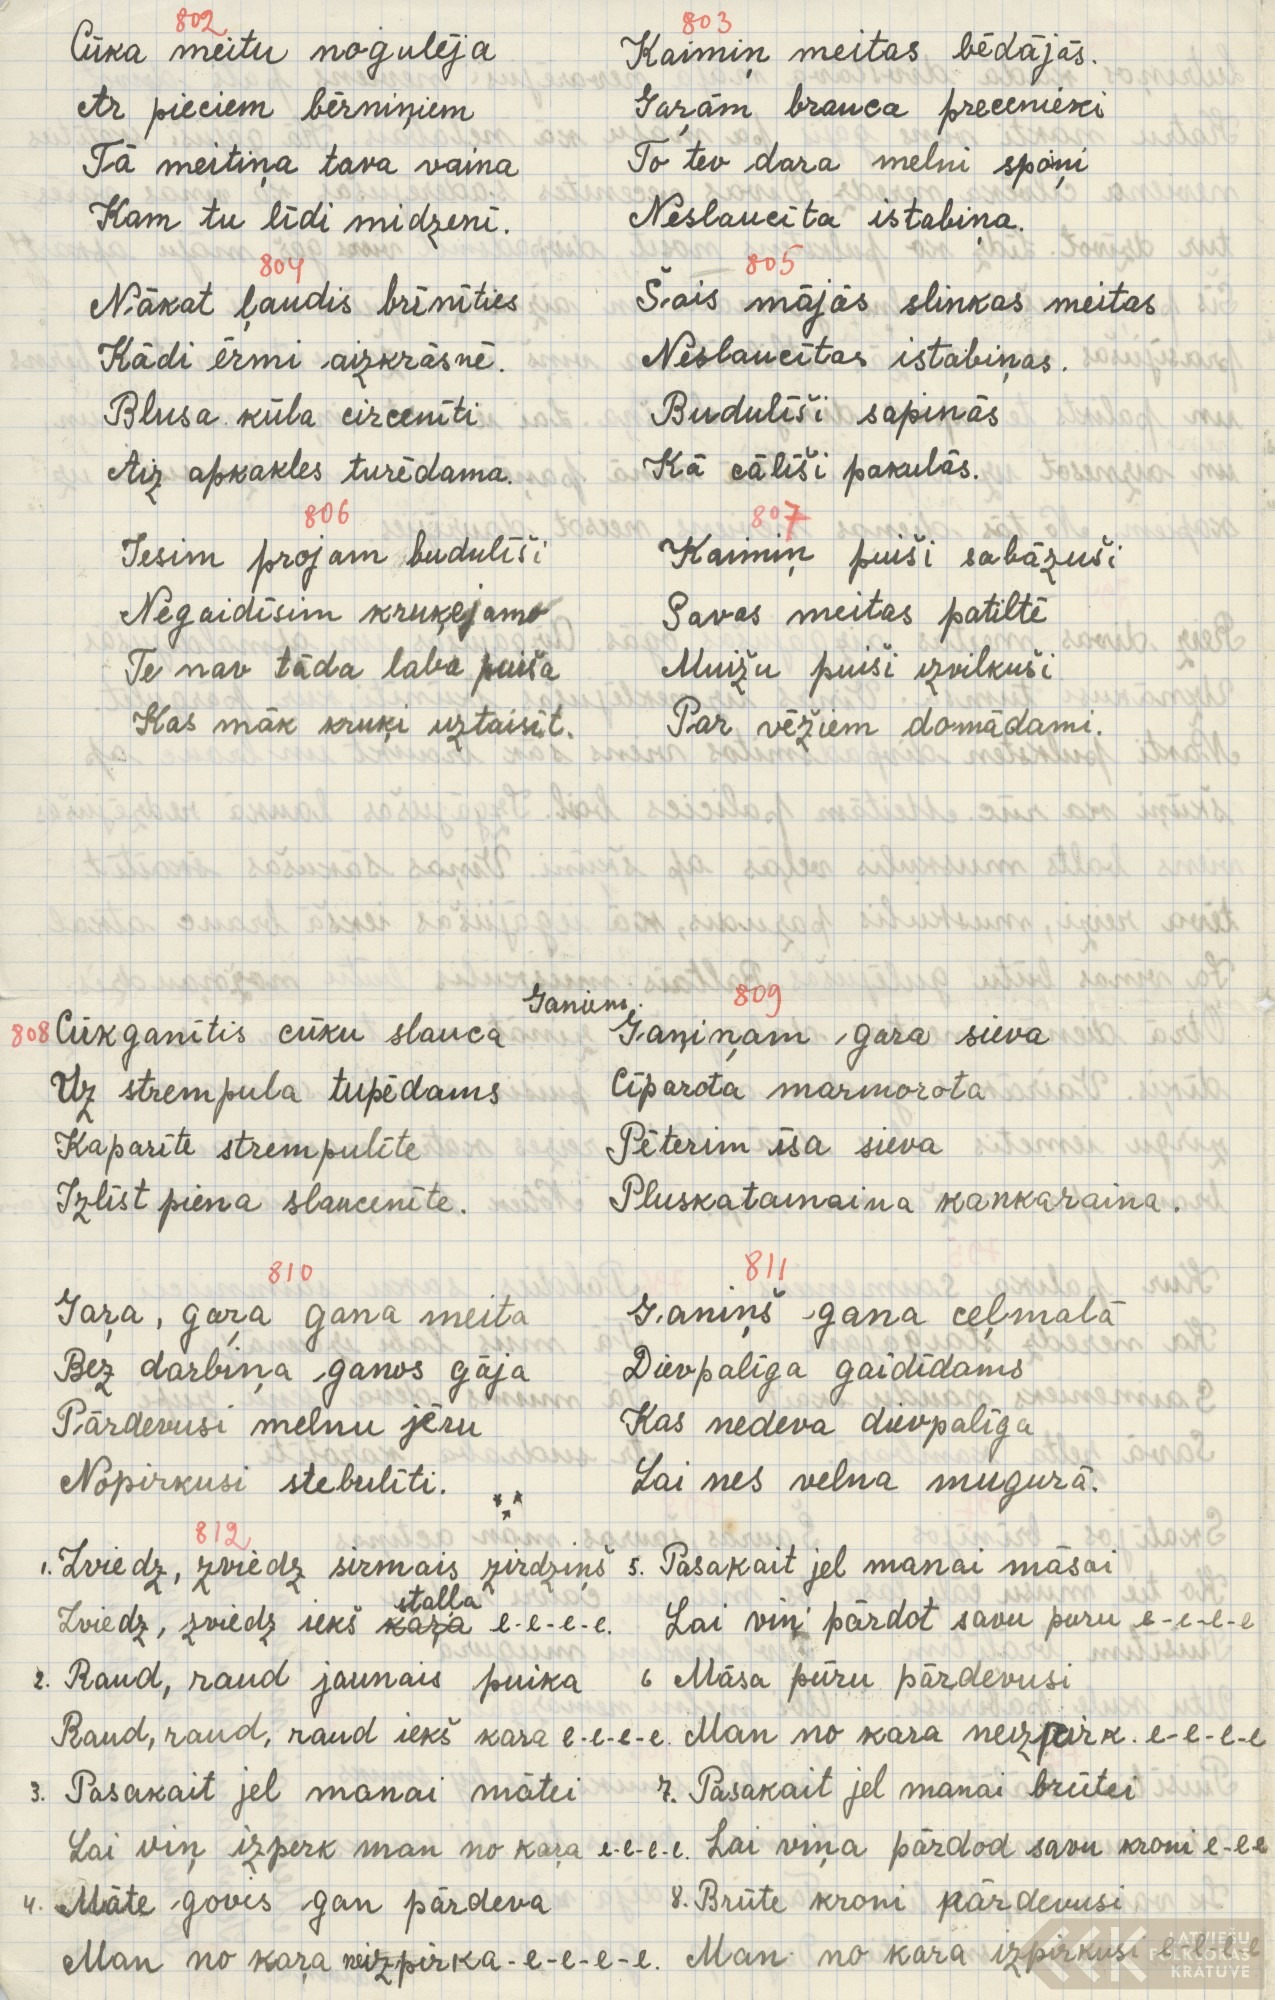 802
Cūka meitu nogulēja
Ar pieciem bērniņiem
Tā meitiņa tava vaina
Kam tu līdi midzenī.
803
Kaimiņ meitas bēdājās.
Gaŗām brauca precenieki
To tev dara melni spoņi
Neslaucīta istabiņa.
804
Nākat ļaudis brīnīties
Kādi ērmi aizkrāsnē.
Blusa kūla circenīti
Aiz apkakles turēdama.
805
Šais mājās slinkas meitas
Neslaucītas istabiņas.
Budulīši sapinās
Kā cālīši pakulās.
806
Iesim projam budulīši
Negaidīsim kruķejamo
Te nav tāda laba puiša
Kas māk kruķi uztaisīt.
807
Kaimiņ puiši sabāzuši
Savas meitas patiltē
Muižu puiši izvilkuši
Par vēžiem domādami.
Ganiem.
808 Cūkganītis cūku slauca
Uz strempula tupēdams
Kaparīte strempulīte
Izlīst piena slaucenīte.
809
Gaņiņam gara sieva
Cīparota marmorota
Pēterim īsa sieva
Pluskatainaina kankaraina.
810
Gaŗa, gaŗa gana meita
Bez darbiņa ganos gāja
Pārdevusi melnu jēru
Nopirkusi stebulīti.
811
Ganiņš gana ceļmalā
Dievpalīga gaidīdams
Kas nedeva dievpalīga
Lai nes velna mugurā.
812
1. Zviedz, zviedz sirmais zirdziņš
Zviedz, zviedz iekš kaŗa stalla e-e-e-e.
2. Raud, raud jaunais puika
Raud, raud, raud iekš kara e-e-e-e.
3. Pasakait jel manai mātei
Lai viņ izperk man no kaŗa e-e-e-e.
4. Māte govis gan pārdeva
Man no kaŗa neizpirka-e-e-e-e.
5. Pasakait jel manai māsai
Lai viņ pārdot savu puru e-e-e-e
6 Māsa pūru pārdevusi
Man no kara neizpirk. e-e-e-e
7. Pasakait jel manai brūtei
Lai viņa pārdod savu kroni e-e-e
8. Brūte kroni pārdevusi
Man no kara izpirkusi e-e-e-e
LATVIEŠU
FOLKLORAS
KRĀTUVE